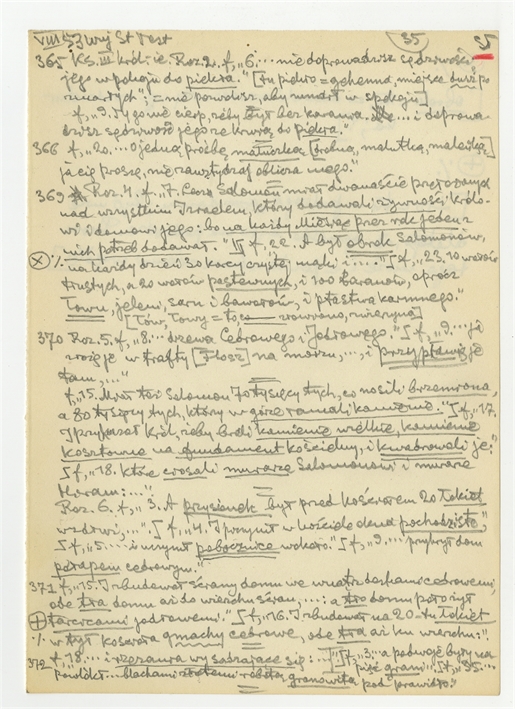 VIII 53 wuj St Test 35 55
365 KS. III król: ie. Roz. 2. f, „6 ... nie doprowadzisz sędziwości
jego w pokoju do piekła." [tu piekło = gehenna, miejsce dusz po
zmarłych; = nie pozwolisz, aby umarł w spokoju]
f, „9. Ty go nie cierp, żeby był bez karania. ... i doprowa-
dzisz sędziwość jego ze krwią do piekła."
366 f, „20. ... o jedną prośbę maluczką [drobną, malutką, maleńką]
ja cię proszę, nie zawstydzaj oblicza mego."
369 Roz. 4. f, „7. Lecz Salomon miał dwanaście przełożonych
nad wszystkim Izraelem, którzy dodawali żywności królo-
wi i domowi jego: bo na każdy Miesiąc przez rok jeden z
nich potrzeb dodawał." ∬ f, 22. A był obrok Salomonów,
% na każdy dzień 30 korcy czystej mąki i ...." ∫ f, „23. 10 wołów
tłustych, a 20 wołów pastewnych, i 100 baranów, oprócz
łowu, jeleni, sarn i bawołów, i ptastwa karmnego."
[Łów, łowy = to, co zwierzyna]
370 Roz. 5. f, „8 ... drzewa Cedrowego i Jodłowego." ∫ f, „9. ... ja
włożę je w trafty [Flosz] na morzu, ..., i przypławię je
tam, ..."
f, „15. Miał też Salomon 70 tysięcy tych, co nosili brzemiona,
a 80 tysięcy tych, którzy w górze łamali kamienie." ∫ f, „17.
I przykazał król, żeby brali kamienie wielkie, kamienie
kosztowne na fundament kościelny, i kwadrowali je."
∫ f, „18. które ciosali murarze Salomonowi i murarze
Hiram: ..."
Roz. 6. f, „3. A przysionek był przed kościołem 20 łokiet
wzdłuż, ...". ∫ f, „4. I przynił w kościele okna pochodziste,"
∫ f, „5. ... i uczynił pobocznice wokoło." ∫ f, „9 ... przykrył dom
pułapem cedrowym."
371 f, „15. I zbudował ściany domu we wnątrz deskami cedrowemi,
ode tła domu aż do wierzchu ścian, ...: a tło domu położył
tarcicami jodłowemi." ∫ f, „16. I zbudował na 20-tu łokiet
% w tył kościoła gmachy cedrowe, ode tła aż ku wierzchu:".
372 f, „18. ... i wysadzające się: ..." ∫ f, „3. ... a podwoje były na
pięć grani" ∫ f, „35. ...
powlókł blachami złotemi robotą graniowitą pod prawidło."